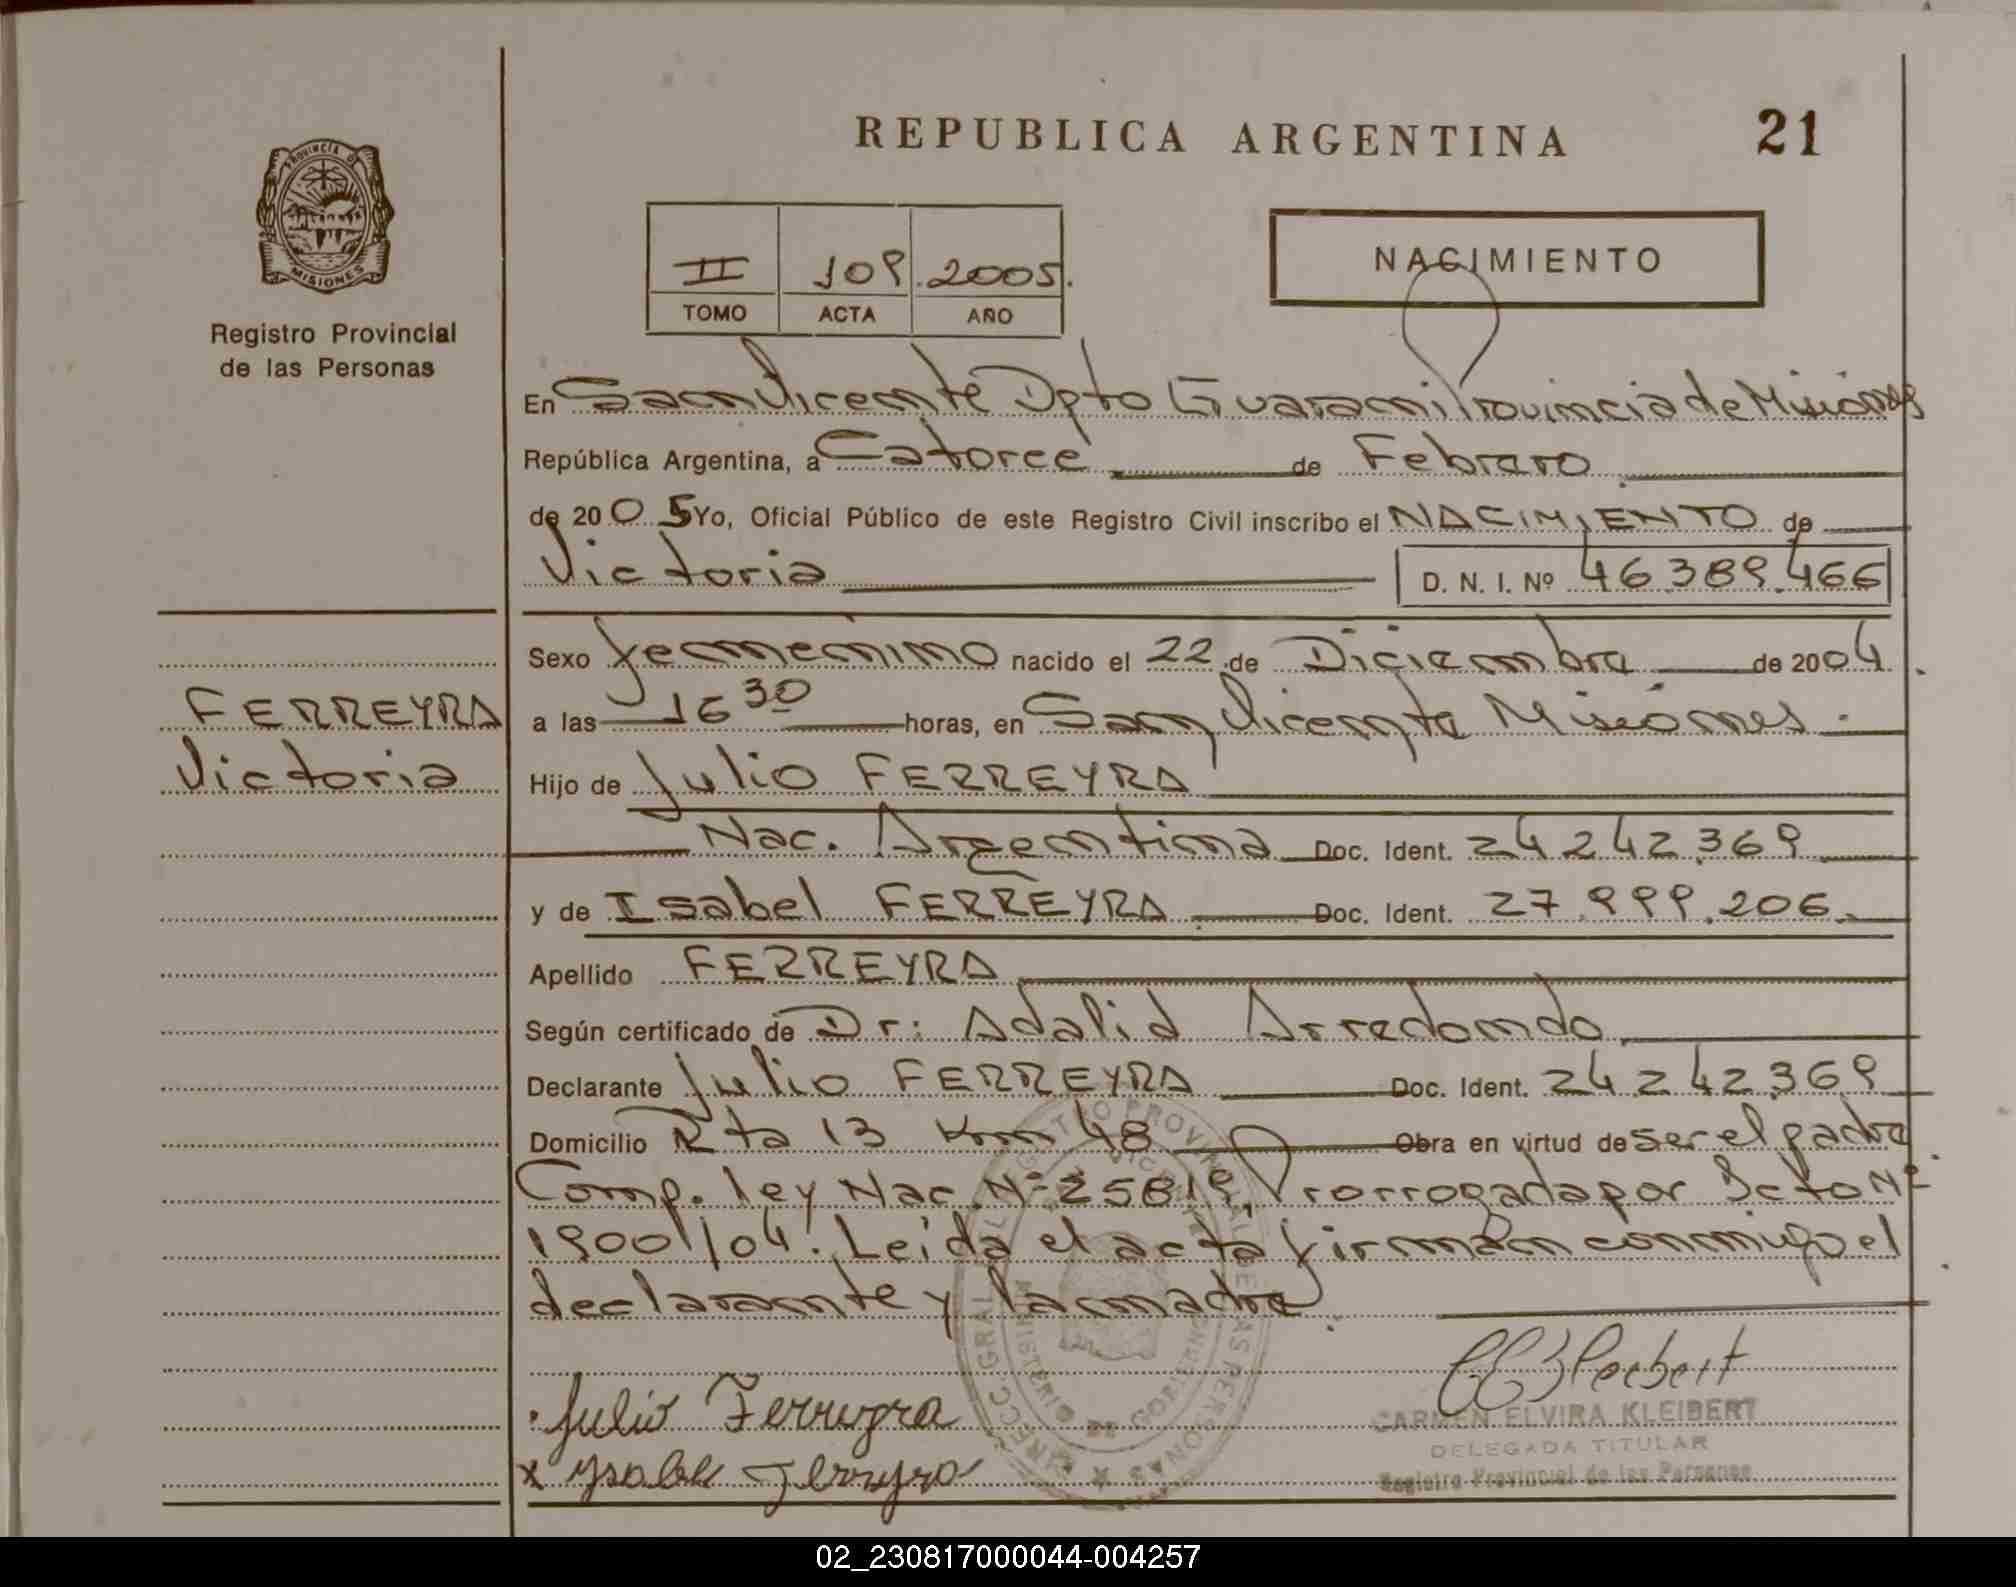 REPUBLICA ARGENTINA
21
PROVINCIA DE
MISIONES
Registro Provincial
de las Personas
II 109 2005.
TOMO ACTA AÑO
NACIMIENTO
En San Vicente Dpto Guarani Provincia de Misiones
República Argentina, a Catorce de Febrero
de 2005 Yo, Oficial Público de este Registro Civil inscribo el NACIMIENTO de
Victoria D. N. I. Nº 46.389.466
Sexo femenino nacido el 22 de Diciembre de 2004.
FERREYRA
Victoria
a las 16 30 horas, en San Vicente Misiones.
Hijo de Julio FERREYRA
Nac. Argentina Doc. Ident. 24.242.369
y de Isabel FERREYRA Doc. Ident. 27.999.206
Apellido FERREYRA
Según certificado de Dr: Adalid Arredondo
Declarante Julio FERREYRA Doc. Ident. 24.242.369
Domicilio Rta 13 Km 48 Obra en virtud de ser el padre
Comp. ley Nac. Nº 25819 Prorrogada por Dcto Nº
1900/04. Leida el acta firman conmigo el
declarante y la madre.
Julio Ferreyra
x Ysabel Ferreyra
CARMEN ELVIRA KLEIBERT
DELEGADA TITULAR
Registro Provincial de las Personas
MINISTERIO DE GOBIERNO
02_230817000044-004257